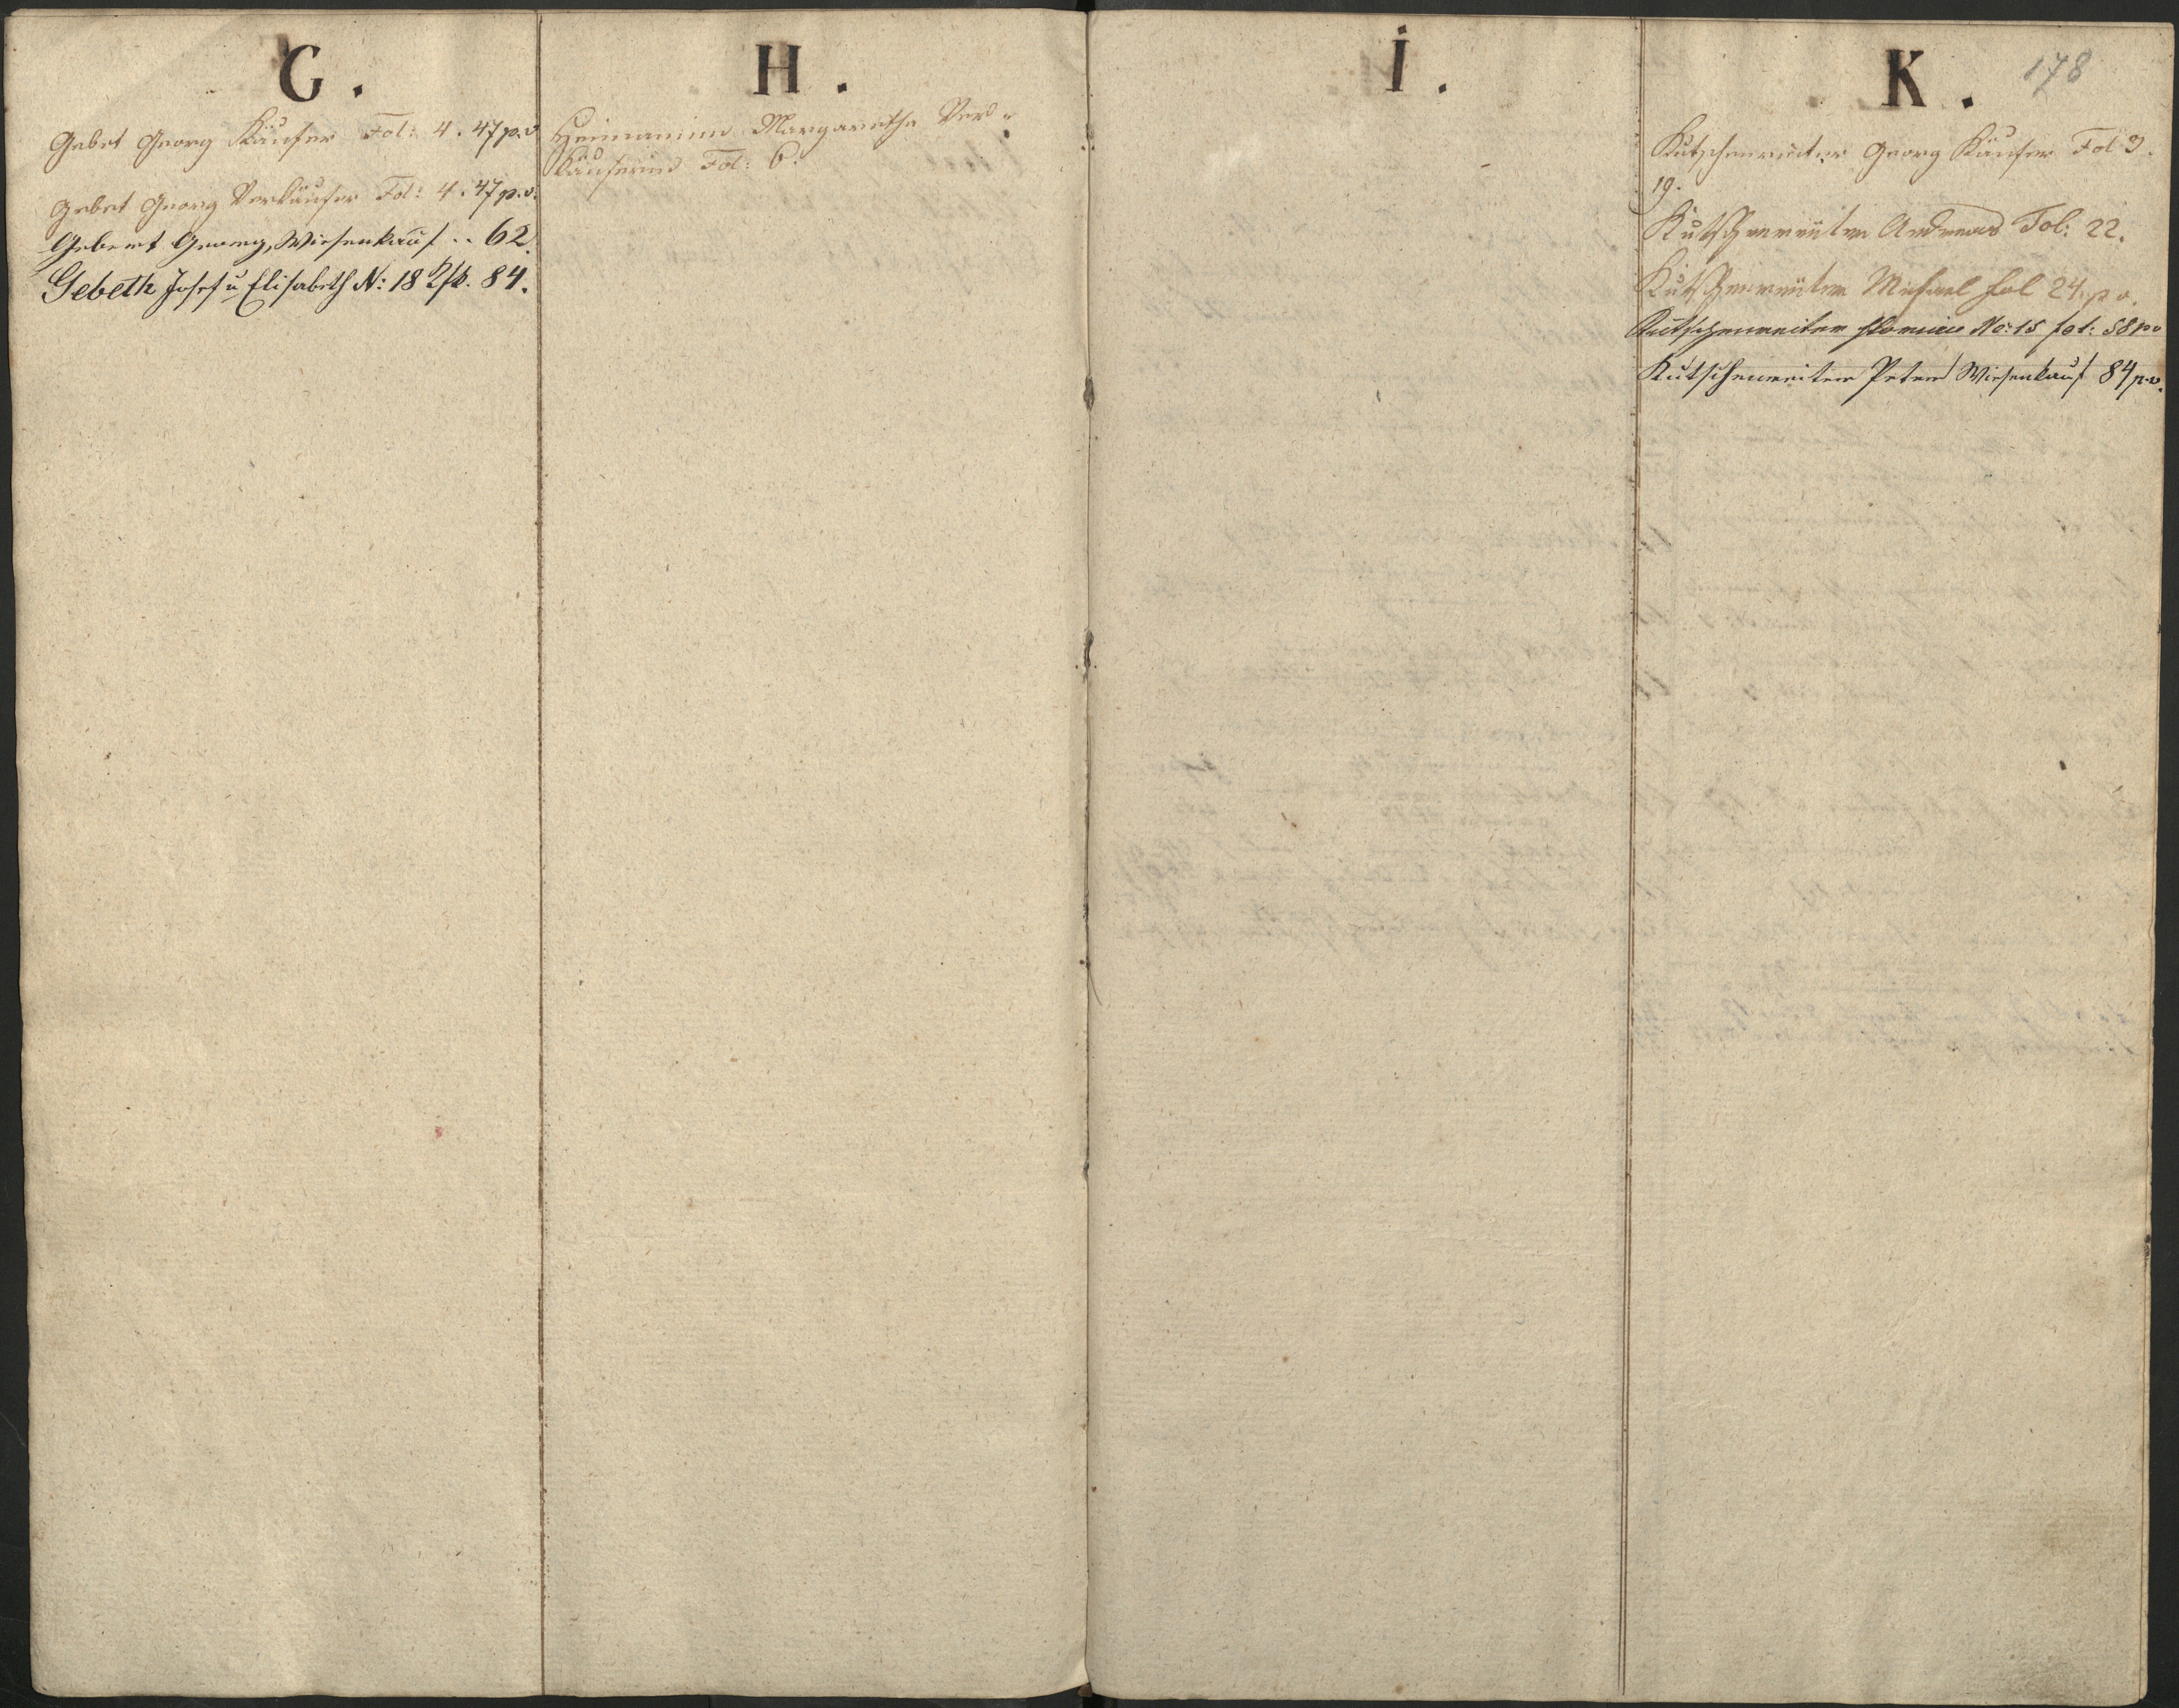 G.
Gebet Georg Käufer Fol: 4. 47 p. v
Gebet Georg Verkäufer Fol: 4. 47 p. v.
Gebert Georg, Wiesenkauf .. 62
Gebeth Josef u Elisabeth N: 18 84.
H.
Heimaninn Margaretha Ver-
Käuferinn Fol: 6.
I.
K. 178
Kutschenreiter Georg Käufer Fol 3.
19.
Kutschenreiter Andreas Fol: 22.
Kutschenreiter Michael fol 24. p v.
Kutschenreiter No: 15 fol: 58 pv
Kutschenreiter Peter Wiesenkauf 84 p. v.